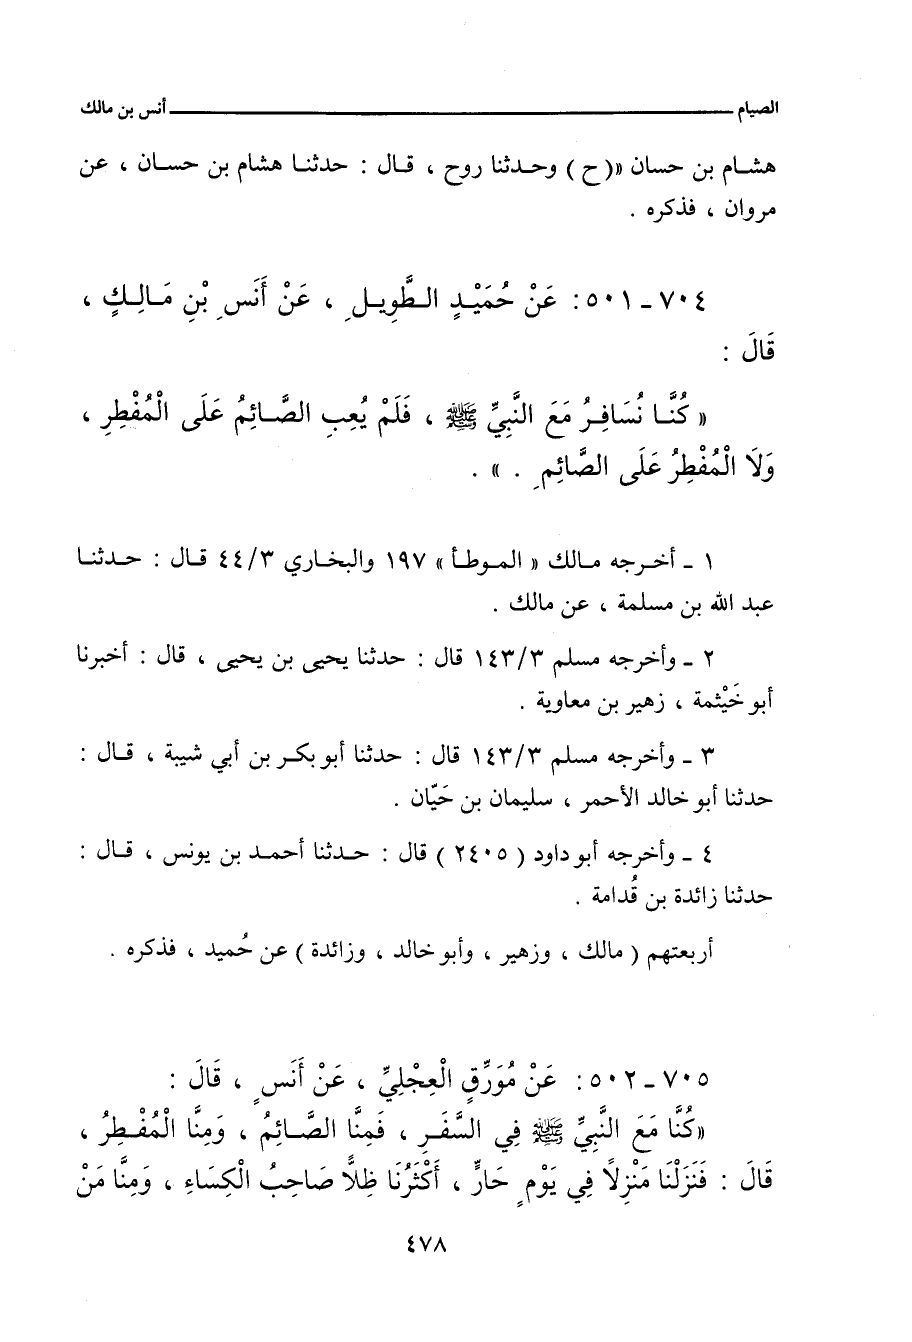 الصيام أنس بن مالك
هشام بن حسان «(ح) وحدثنا روح ، قال : حدثنا هشام بن حسان ، عن
مروان ، فذكره .
٧٠٤ ـ ٥٠١: عَنْ حُمَيْدٍ الطَّوِيلِ ، عَنْ أَنَسِ بْنِ مَالِكٍ ،
قَالَ :
« كُنَّا نُسَافِرُ مَعَ النَّبِيِّ ﷺ ، فَلَمْ يُعِبِ الصَّائِمُ عَلَى الْمُفْطِرِ ،
وَلَا الْمُفْطِرُ عَلَى الصَّائِمِ . » .
١ ـ أخرجه مالك « الموطأ » ١٩٧ والبخاري ٤٤/٣ قال : حدثنا
عبد الله بن مسلمة ، عن مالك .
٢ ـ وأخرجه مسلم ١٤٣/٣ قال : حدثنا يحيى بن يحيى ، قال : أخبرنا
أبو خَيْثمة ، زهير بن معاوية .
٣ ـ وأخرجه مسلم ١٤٣/٣ قال : حدثنا أبو بكر بن أبي شيبة ، قال :
حدثنا أبو خالد الأحمر ، سليمان بن حَيّان .
٤ ـ وأخرجه أبو داود ( ٢٤٠٥ ) قال : حدثنا أحمد بن يونس ، قال :
حدثنا زائدة بن قُدامة .
أربعتهم ( مالك ، وزهير ، وأبو خالد ، وزائدة ) عن حُميد ، فذكره .
٧٠٥ ـ ٥٠٢: عَنْ مُوَرِّقٍ الْعِجْلِيِّ ، عَنْ أَنَسٍ ، قَالَ :
«كُنَّا مَعَ النَّبِيِّ ﷺ فِي السَّفَرِ ، فَمِنَّا الصَّائِمُ ، وَمِنَّا الْمُفْطِرُ ،
قَالَ : فَنَزَلْنَا مَنْزِلًا فِي يَوْمٍ حَارٍّ ، أَكْثَرُنَا ظِلًّا صَاحِبُ الْكِسَاءِ ، وَمِنَّا مَنْ
٤٧٨